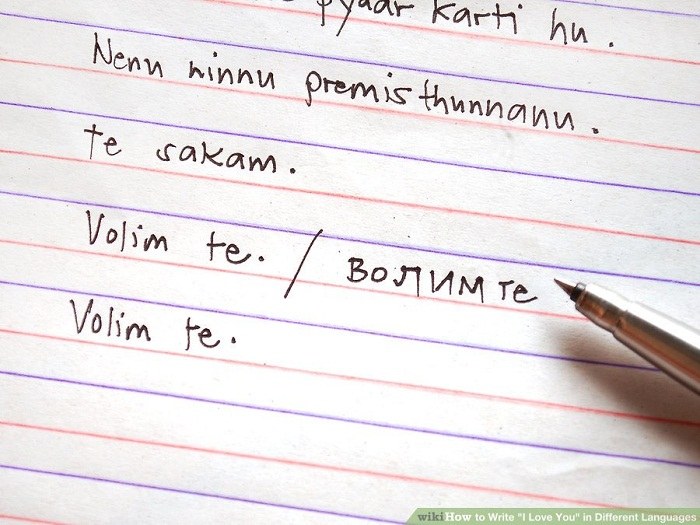 pyaar karti hu.
Nenu ninnu premisthunnanu.
te sakam.
Volim te. / волим те
Volim te.
wikiHow to Write "I Love You" in Different Languages